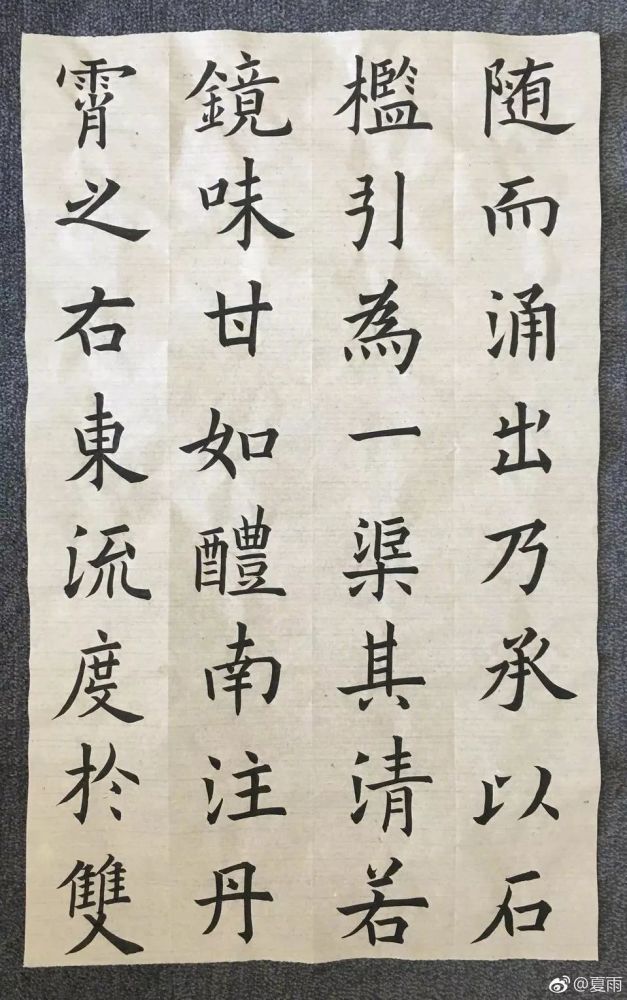 随而涌出乃承以石
檻引為一渠其清若
鏡味甘如醴南注丹
霄之右東流度於雙
@夏雨